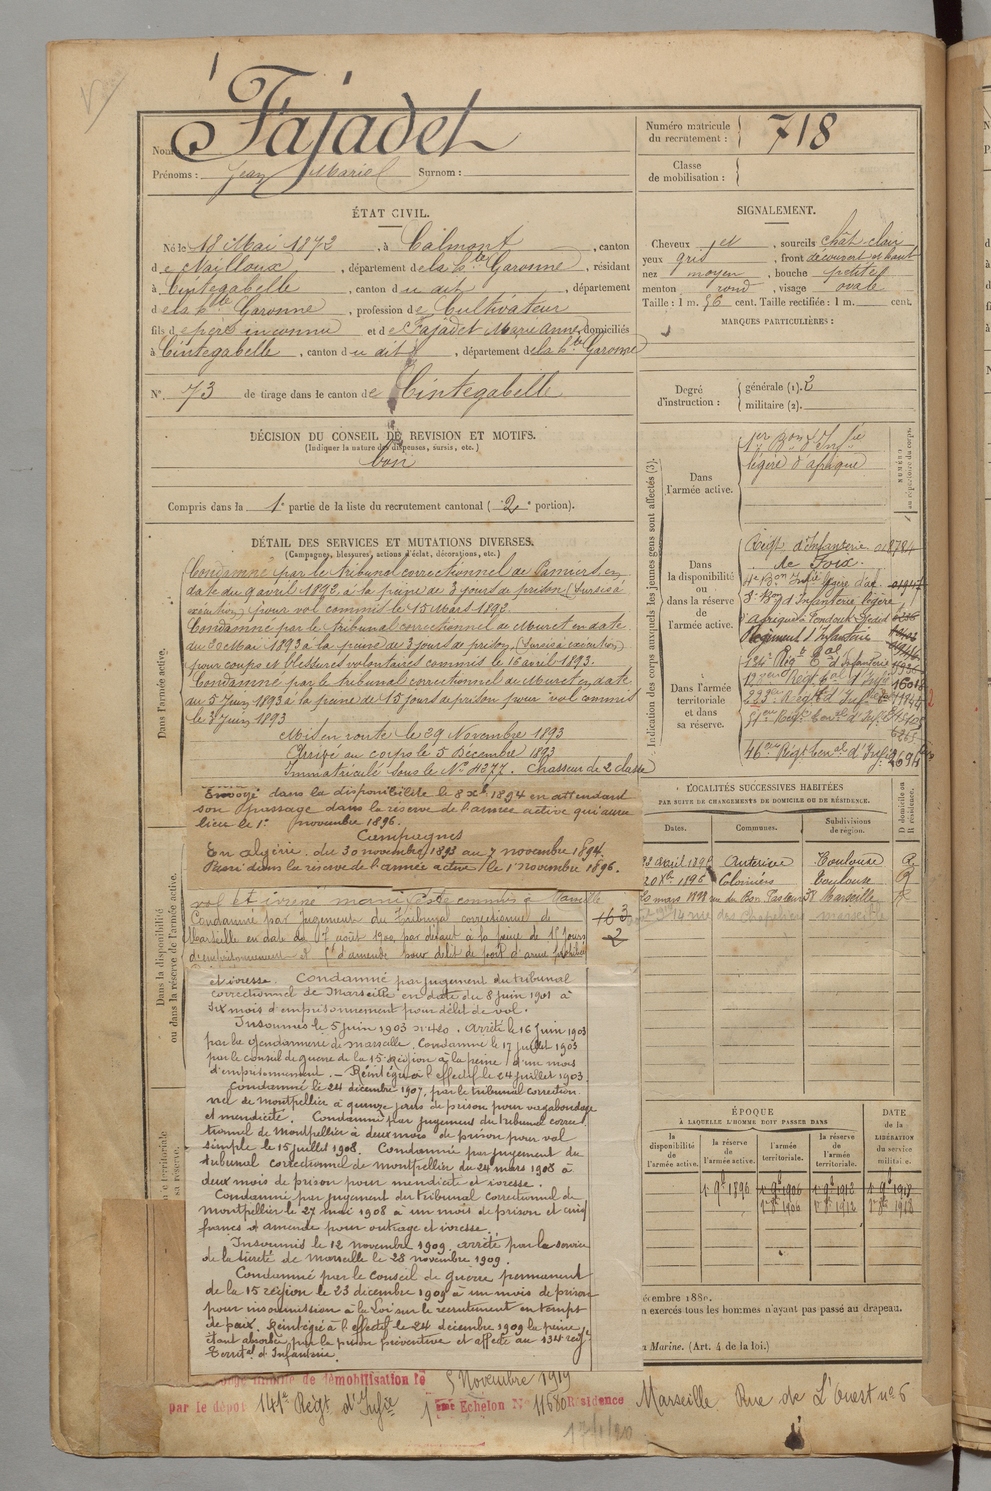 Fajadet
Nom
Prénoms : Jean Marie Surnom :
Numéro matricule
du recrutement : 718
Classe
de mobilisation :
ÉTAT CIVIL.
Né le 18 Mai 1872, à Calmont, canton
de Nailloux, département de la hte Garonne, résidant
à Cintegabelle, canton du dit, département
de la hte Garonne, profession de Cultivateur
fils de père inconnu et de Fajadet Marie Anne, domiciliés
à Cintegabelle, canton du dit, département de la hte Garonne
N° 73 de tirage dans le canton de Cintegabelle
SIGNALEMENT.
Cheveux, sourcils chât-clair
yeux gris, front découvert et haut
nez moyen, bouche petite
menton rond, visage ovale
Taille : 1 m. 56 cent. Taille rectifiée : 1 m. cent.
MARQUES PARTICULIÈRES :
Degré
d'instruction :
générale (1). 2
militaire (2).
DÉCISION DU CONSEIL DE REVISION ET MOTIFS.
(Indiquer la nature des dispenses, sursis, etc.)
bon
Compris dans la 1e partie de la liste du recrutement cantonal (2e portion).
DÉTAIL DES SERVICES ET MUTATIONS DIVERSES.
(Campagnes, blessures, actions d'éclat, décorations, etc.)
Dans l'armée active.
Condamné par le tribunal correctionnel de Pamiers, en
date du 9 avril 1892, à la peine de 3 jours de prison (Sursis à
exécution) pour vol commis le 15 Mars 1892.
Condamné par le tribunal correctionnel de Muret en date
du 30 Mai 1893 à la peine de 3 jours de prison, (Sursis à exécution)
pour coups et blessures volontaires commis le 16 avril 1893.
Condamné par le tribunal correctionnel de Muret en date
du 5 Juin 1893 à la peine de 15 jours de prison pour vol commis
le 3 Juin 1893
Mis en route le 29 Novembre 1893
Arrivé au corps le 5 Décembre 1893
Immatriculé sous le N° 4277. Chasseur de 2e classe
Envoyé dans la disponibilité le 8 xbre 1894 en attendant
son passage dans la réserve de l'armée active qui aura
lieu le 1er novembre 1896.
Campagnes
En algérie. du 30 novembre 1893 au 7 novembre 1894.
Passé dans la réserve de l'armée active le 1er novembre 1896.
Dans la disponibilité
ou dans la réserve de l'armée active.
vol et ivresse manifeste commis à Marseille
Condamné par Jugement du Tribunal correctionnel de
Marseille en date du 17 août 1900, par défaut à la peine de 15 jours
d'emprisonnement et d'amende pour délit de port d'arme prohibée
et ivresse. Condamné par jugement du tribunal
correctionnel de Marseille en date du 8 juin 1901 à
six mois d'emprisonnement pour délit de vol.
Insoumis le 5 juin 1903 Arrêté le 16 juin 1903
par la gendarmerie de marseille. Condamné le 17 juillet 1903
par le conseil de guerre de la 15e région à la peine d'un mois
d'emprisonnement. - Réintégré à l'effectif le 24 juillet 1903.
Condamné le 24 décembre 1907, par le tribunal correction
nel de montpellier à quinze jours de prison pour vagabondage
et mendicité. Condamné par jugement du tribunal correc
tionnel de montpellier à deux mois de prison pour vol
simple le 15 juillet 1908. Condamné par jugement du
tribunal correctionnel de montpellier du 24 mars 1908 à
deux mois de prison pour mendicité et ivresse.
Condamné par jugement du tribunal correctionnel de
montpellier le 27 mai 1908 à un mois de prison et cinq
francs d'amende pour outrage et ivresse.
Insoumis le 12 novembre 1909. arrêté par le service
de la sûreté de marseille le 28 novembre 1909.
Condamné par le Conseil de Guerre permanent
de la 15 région le 23 décembre 1909 à un mois de prison
pour insoumission à la Loi sur le recrutement en temps
de paix. Réintégré à l'effectif le 24 décembre 1909 la peine
étant absorbée par la prison préventive et affecté au 134e régt
Territal d'Infanterie.
de démobilisation le 5 Novembre 1919
par le dépôt 141e Régt d'Infie 1er Echelon N° 11680 Résidence Marseille Rue de L'Ouest n° 6
17/1/20
Indication des corps auxquels les jeunes gens sont affectés (3).
Dans
l'armée active.
1er Bon d'Infie
légère d'afrique
Dans
la disponibilité
ou
dans la réserve de
l'armée active.
Régt d'Infanterie
de Foix
4e Bon Infie légère d'af.
3e Bon d'Infanterie légère
Régiment d'Infanterie
Dans l'armée
territoriale
et dans
sa réserve.
134e Régt Tal d'Infanterie
46eme Régt teral d'Infie
LOCALITÉS SUCCESSIVES HABITÉES
PAR SUITE DE CHANGEMENTS DE DOMICILE OU DE RÉSIDENCE.
Dates. Communes. Subdivisions de région. D domicile ou R résidence.
23 avril 1896 Auterive Toulouse R
20 xbre 1896 Colomiers Toulouse R
20 mars 1898 rue du Bon Pasteur 38 Marseille R
14 rue des Chapeliers marseille
ÉPOQUE
À LAQUELLE L'HOMME DOIT PASSER DANS
la disponibilité de l'armée active. la réserve de l'armée active. l'armée territoriale. la réserve de l'armée territoriale.
DATE de la LIBÉRATION du service militaire.
1er 9bre 1896 1er 9bre 1906 1er 9bre 1912 1er 9bre 1918
écembre 1880.
n exercés tous les hommes n'ayant pas passé au drapeau.
a Marine. (Art. 4 de la loi.)